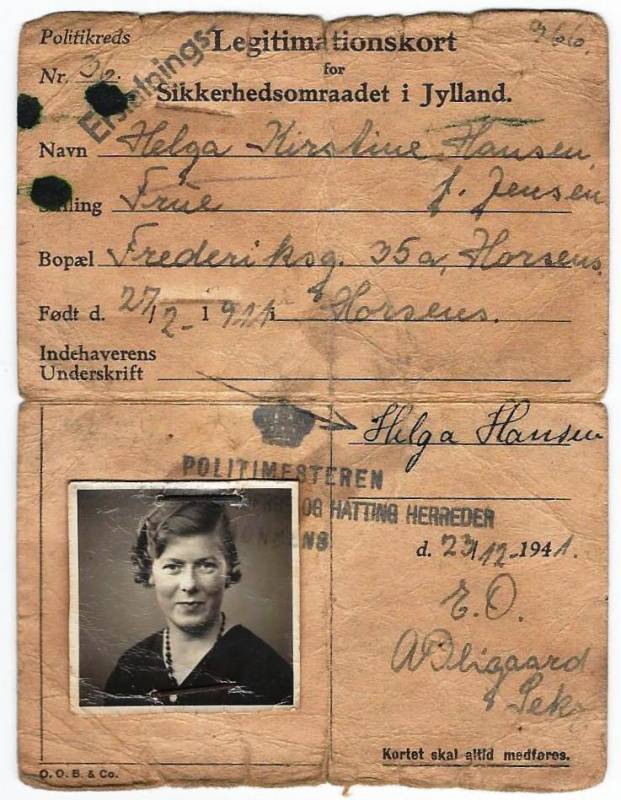 Politikreds
Legitimationskort
Nr.
for
Erstatnings-
Sikkerhedsomraadet i Jylland.
Navn Helga Kirstine Hansen,
Stilling Frue f. Jensen
Bopæl Frederiksg. 35a, Horsens.
Født d. 27/12-1911 i Horsens.
Indehaverens
Underskrift
Helga Hansen
POLITIMESTEREN
OG HATTING HERREDER
d. 23/12-1941.
E. O.
A Bligaard
Kortet skal altid medføres.
O. O. B. & Co.